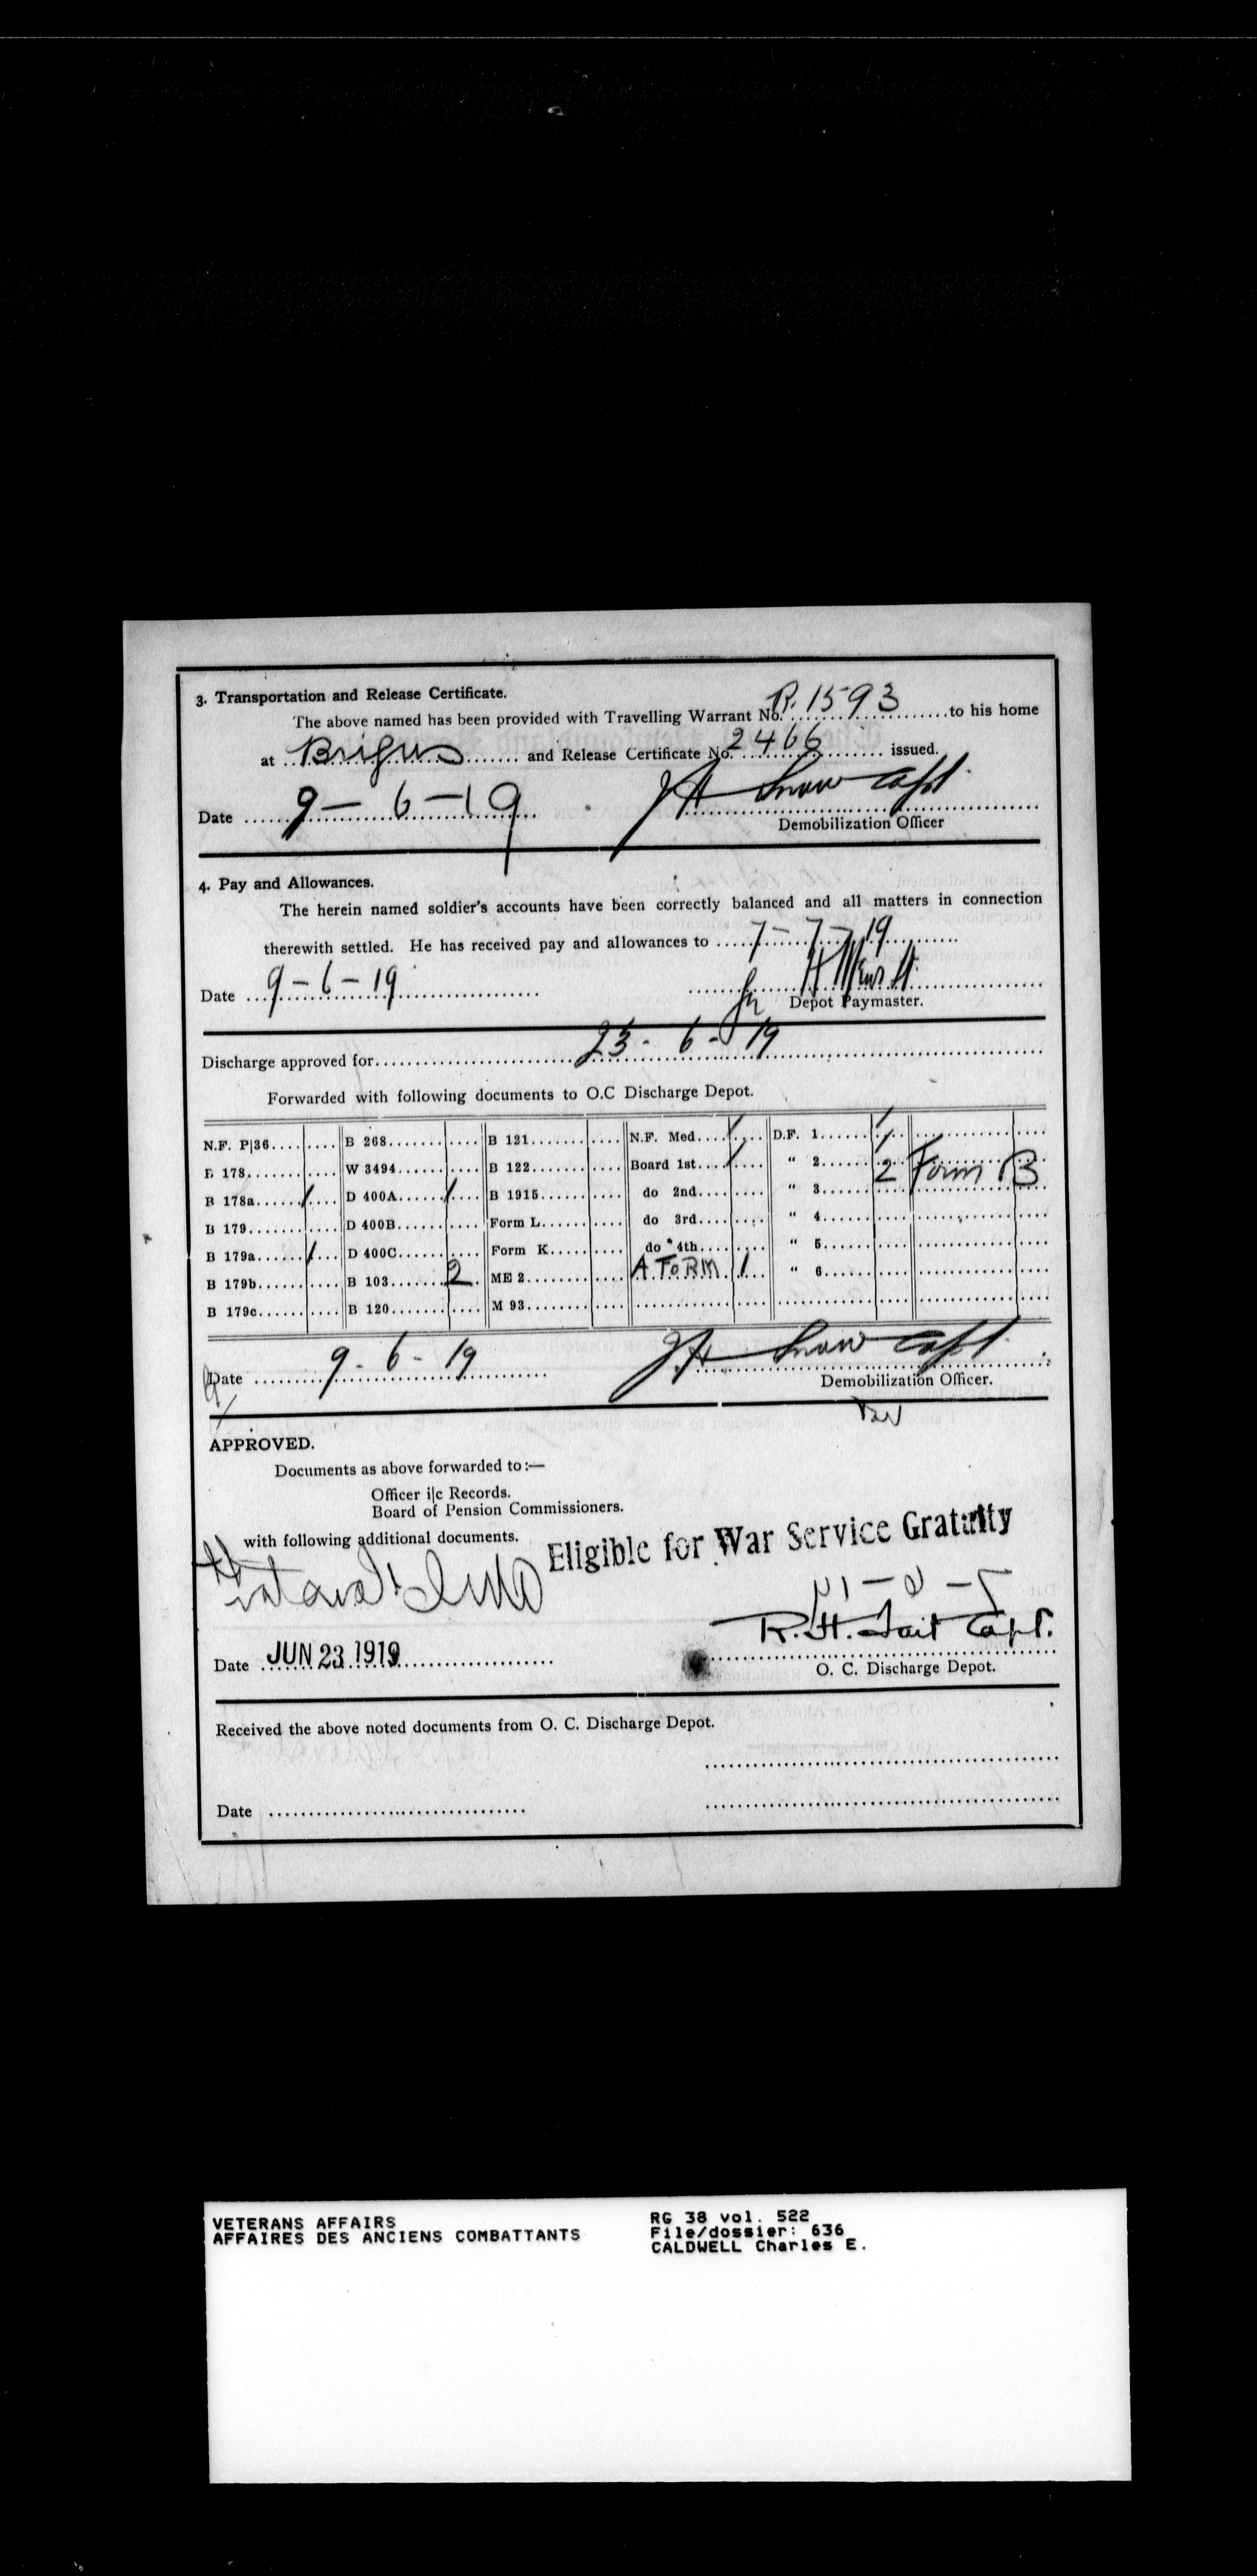 3. Transportation and Release Certificate.
The above named has been provided with Travelling Warrant No. R.1593 to his home
at Brigus and Release Certificate No. 2466 issued.
Date 9-6-19 JH Snow Capt.
Demobilization Officer
4. Pay and Allowances.
The herein named soldier's accounts have been correctly balanced and all matters in connection
therewith settled. He has received pay and allowances to 7-7-19
Date 9-6-19
Depot Paymaster.
Discharge approved for 23-6-19
Forwarded with following documents to O.C Discharge Depot.
N.F. P|36 B 268 B 121 N.F. Med 1 D.F. 1 1
B 178 W 3494 B 122 Board 1st 1 " 2 1
B 178a 1 D 400A 1 B 1915 do 2nd " 3 2 Form B
B 179 D 400B Form L do 3rd " 4
B 179a 1 D 400C Form K do 4th " 5
B 179b B 103 2 ME 2 A FORM 1 " 6
B 179c B 120 M 93
Date 9-6-19 JH Snow Capt.
Demobilization Officer.
APPROVED.
Documents as above forwarded to:—
Officer i|c Records.
Board of Pension Commissioners.
with following additional documents.
Eligible for War Service Gratuity
R.H. Tait Capt.
Date JUN 23 1919
O. C. Discharge Depot.
Received the above noted documents from O. C. Discharge Depot.
Date
VETERANS AFFAIRS RG 38 vol. 522
AFFAIRES DES ANCIENS COMBATTANTS File/dossier: 636
CALDWELL Charles E.